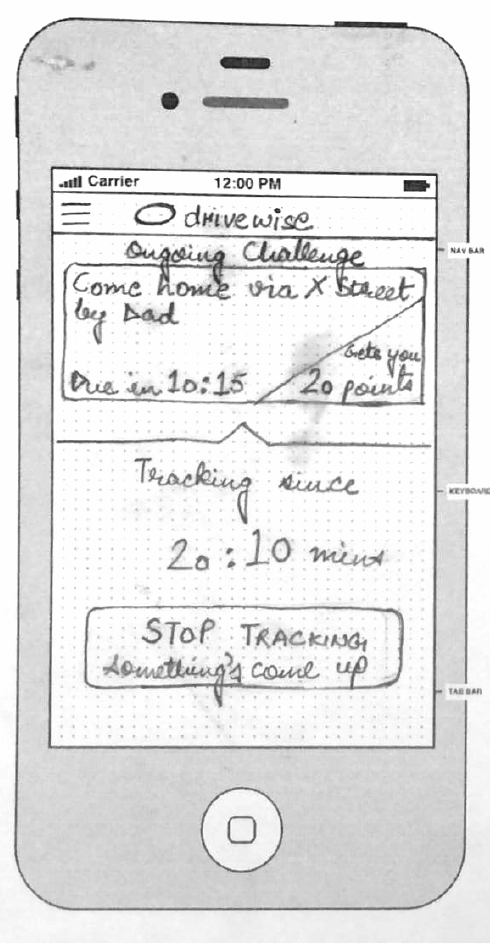 Carrier 12:00 PM
drivewise
Ongoing Challenge
Come home via X Street
by Dad
Gets you
Due in 10:15 20 points
Tracking since
20:10 mins
STOP TRACKING
Something's come up
NAV BAR
KEYBOARD
TAB BAR